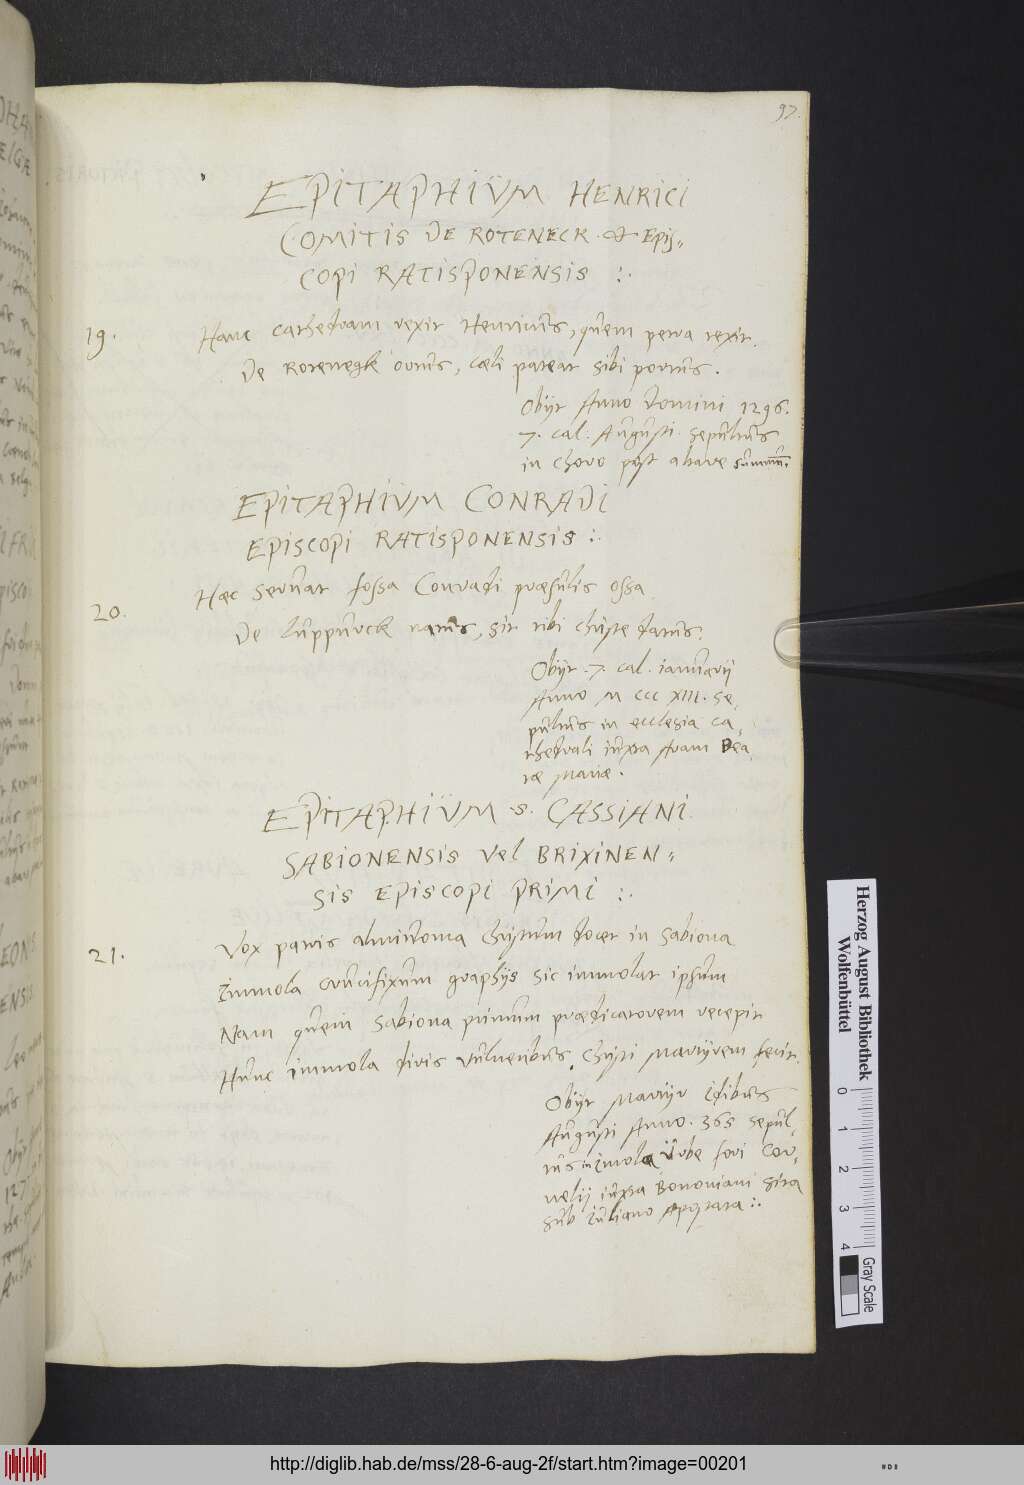 97.
EPITAPHIVM HENRICI
COMITIS DE ROTENECK. & EPIS=
COPI RATISPONENSIS :.
19. Hanc cathedram rexit Henricus, quem petra texit.
De Rotenegk ortus, cæli pateat sibi portus.
Obijt Anno Domini 1296.
7. cal. Augusti. sepultus
in choro post altare summum.
EPITAPHIVM CONRADI
EPISCOPI RATISPONENSIS :.
Hæc servat fossa Conradi præsulis ossa
20. De Luppurck natus, sit tibi christe datus.
Obijt . 7. cal. ianuarij
Anno M CCC XIII. se,
pultus in ecclesia ca,
thedrali iuxta Aram Bea,
tæ Mariæ .
EPITAPHIVM .S. CASSIANI
SABIONENSIS vel BRIXINEN=
SIS EPISCOPI PRIMI :.
21. Vox patris altitrona Christum docet in Sabiona
Immola crucifixum graphijs sic immolat ipsum
Nam quem Sabiona primum prædicatorem recepit
Hunc immola diris vulneribus Christi Martyrem fecit.
Obijt Martyr idibus
Augusti Anno . 365 sepul-
tus in Imola Vrbe fori Cor,
nelij iuxta Bononiam sita
sub Iuliano Apostata :.
Herzog August Bibliothek
Wolfenbüttel
0 1 2 3 4
Gray Scale
http://diglib.hab.de/mss/28-6-aug-2f/start.htm?image=00201